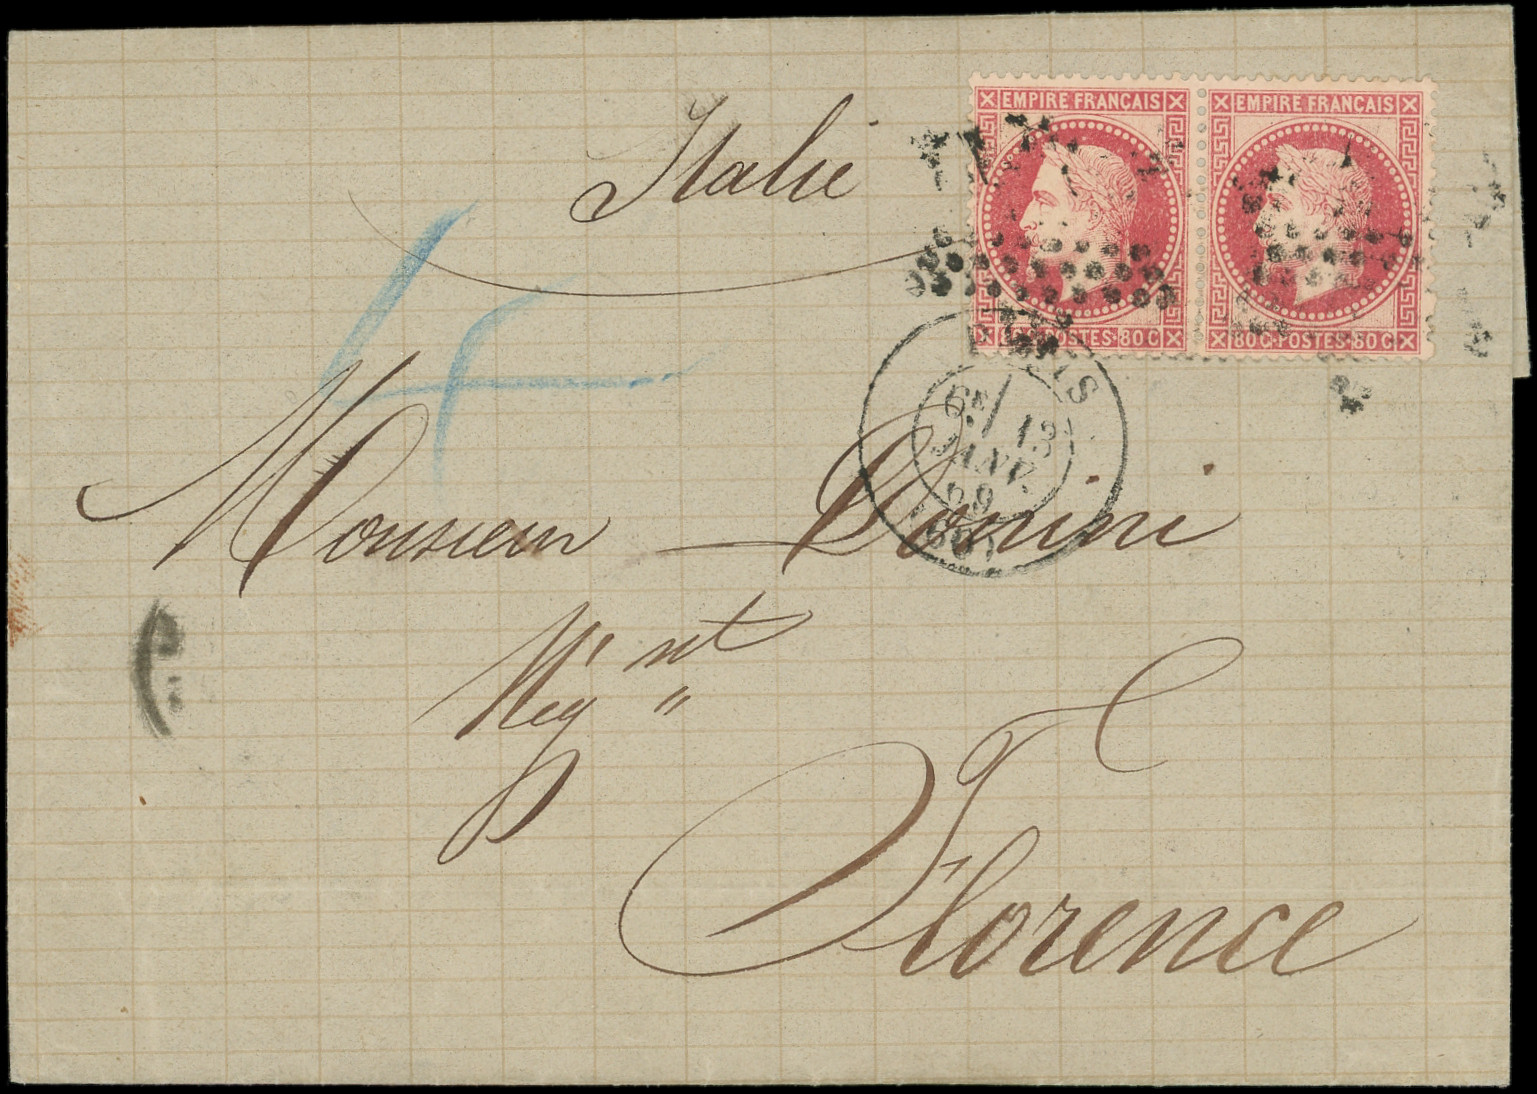 Italie
EMPIRE FRANÇAIS
POSTES·80C
EMPIRE FRANÇAIS
80C·POSTES·80C
4
PARIS
6E/ 13
JANV.
69
(60)
Monsieur Domini
Négt
Florence